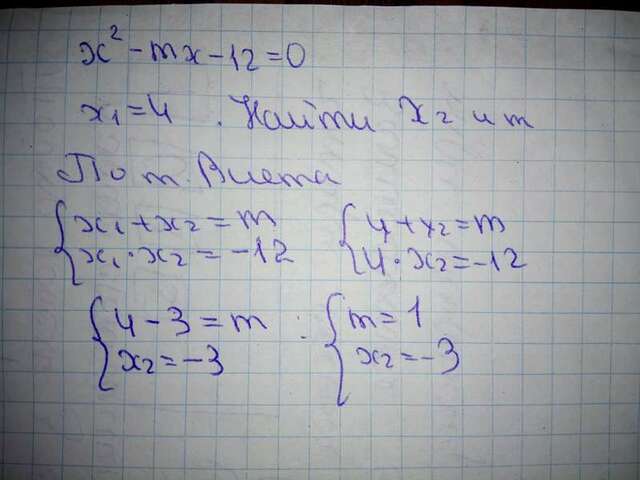 x² - mx - 12 = 0
x₁ = 4. Найти x₂ и m
По т. Виета
{ x₁ + x₂ = m { 4 + x₂ = m
{ x₁ · x₂ = -12 { 4 · x₂ = -12
{ 4 - 3 = m ; { m = 1
{ x₂ = -3 { x₂ = -3